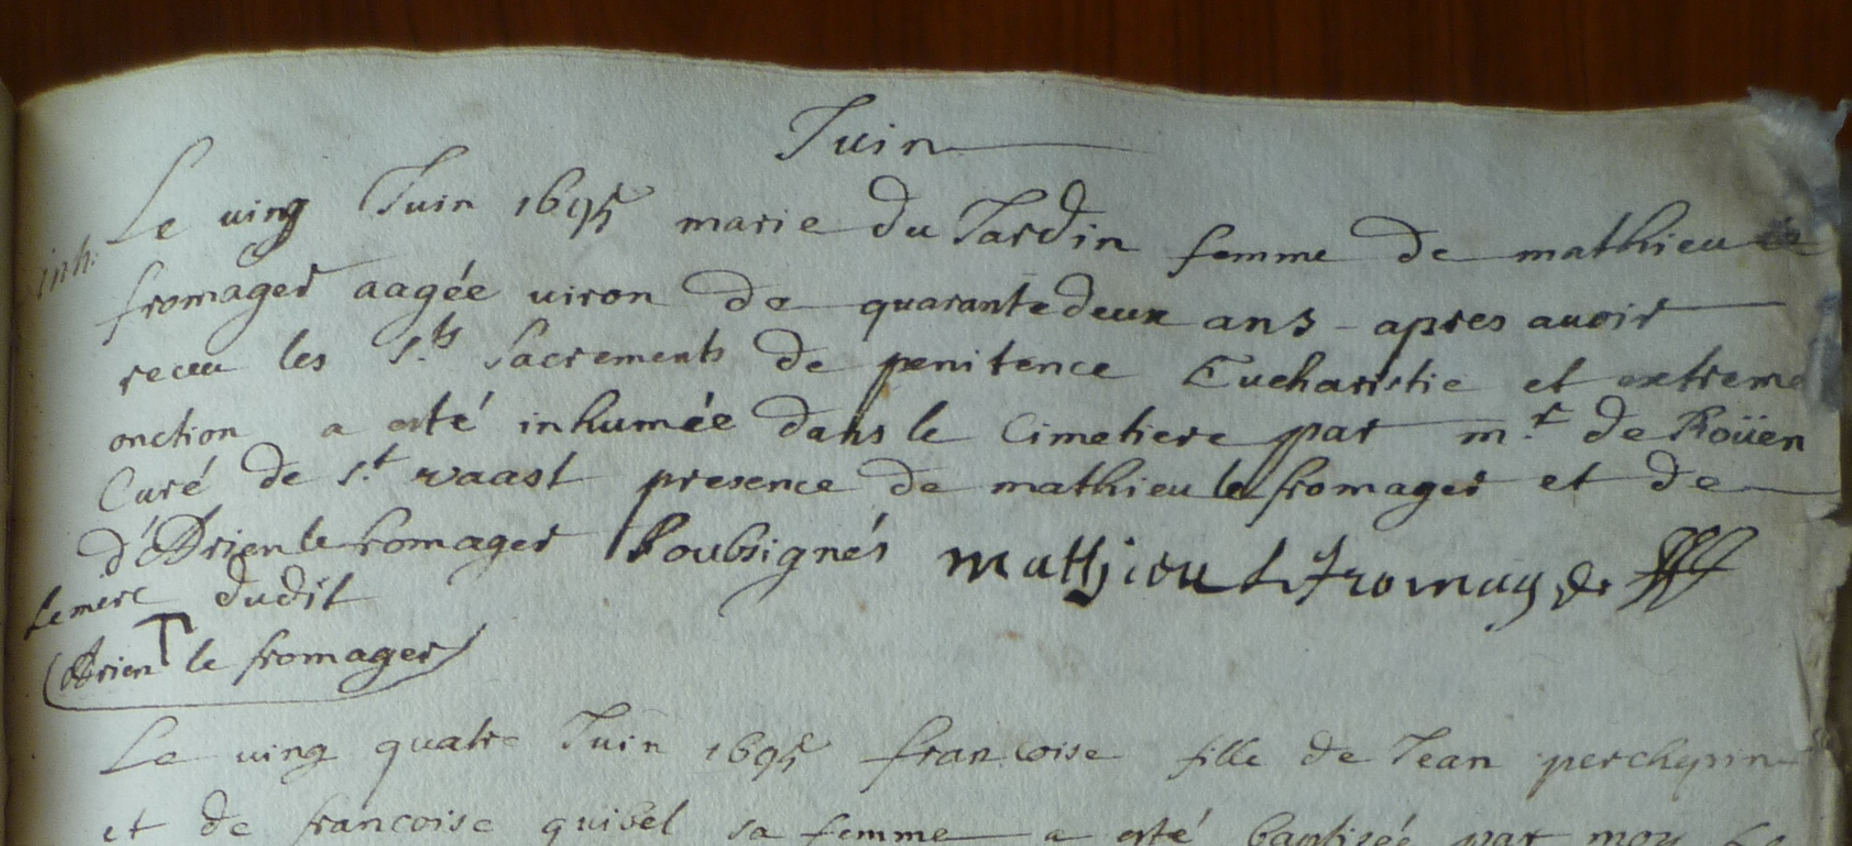 Juin
Le uing Juin 1695 marie du Jardin femme de mathieu le
inh.
fromager aagée uiron de quarante deux ans - apres auoir
receu les S.ts Sacrements de penitence Eucharistie et extreme
onction a esté inhumée dans le Cimetiere par m.r de Roüen
Curé de S.t vaast presence de mathieu le fromager et de
d'Adrien le fromager soubsignés mathieu le fromager
Le merc dudit
Adrien T le fromager
Le uing quatre Juin 1695 francoise fille de Jean perchepin
et de francoise quibel sa femme a esté baptisée par moy Le